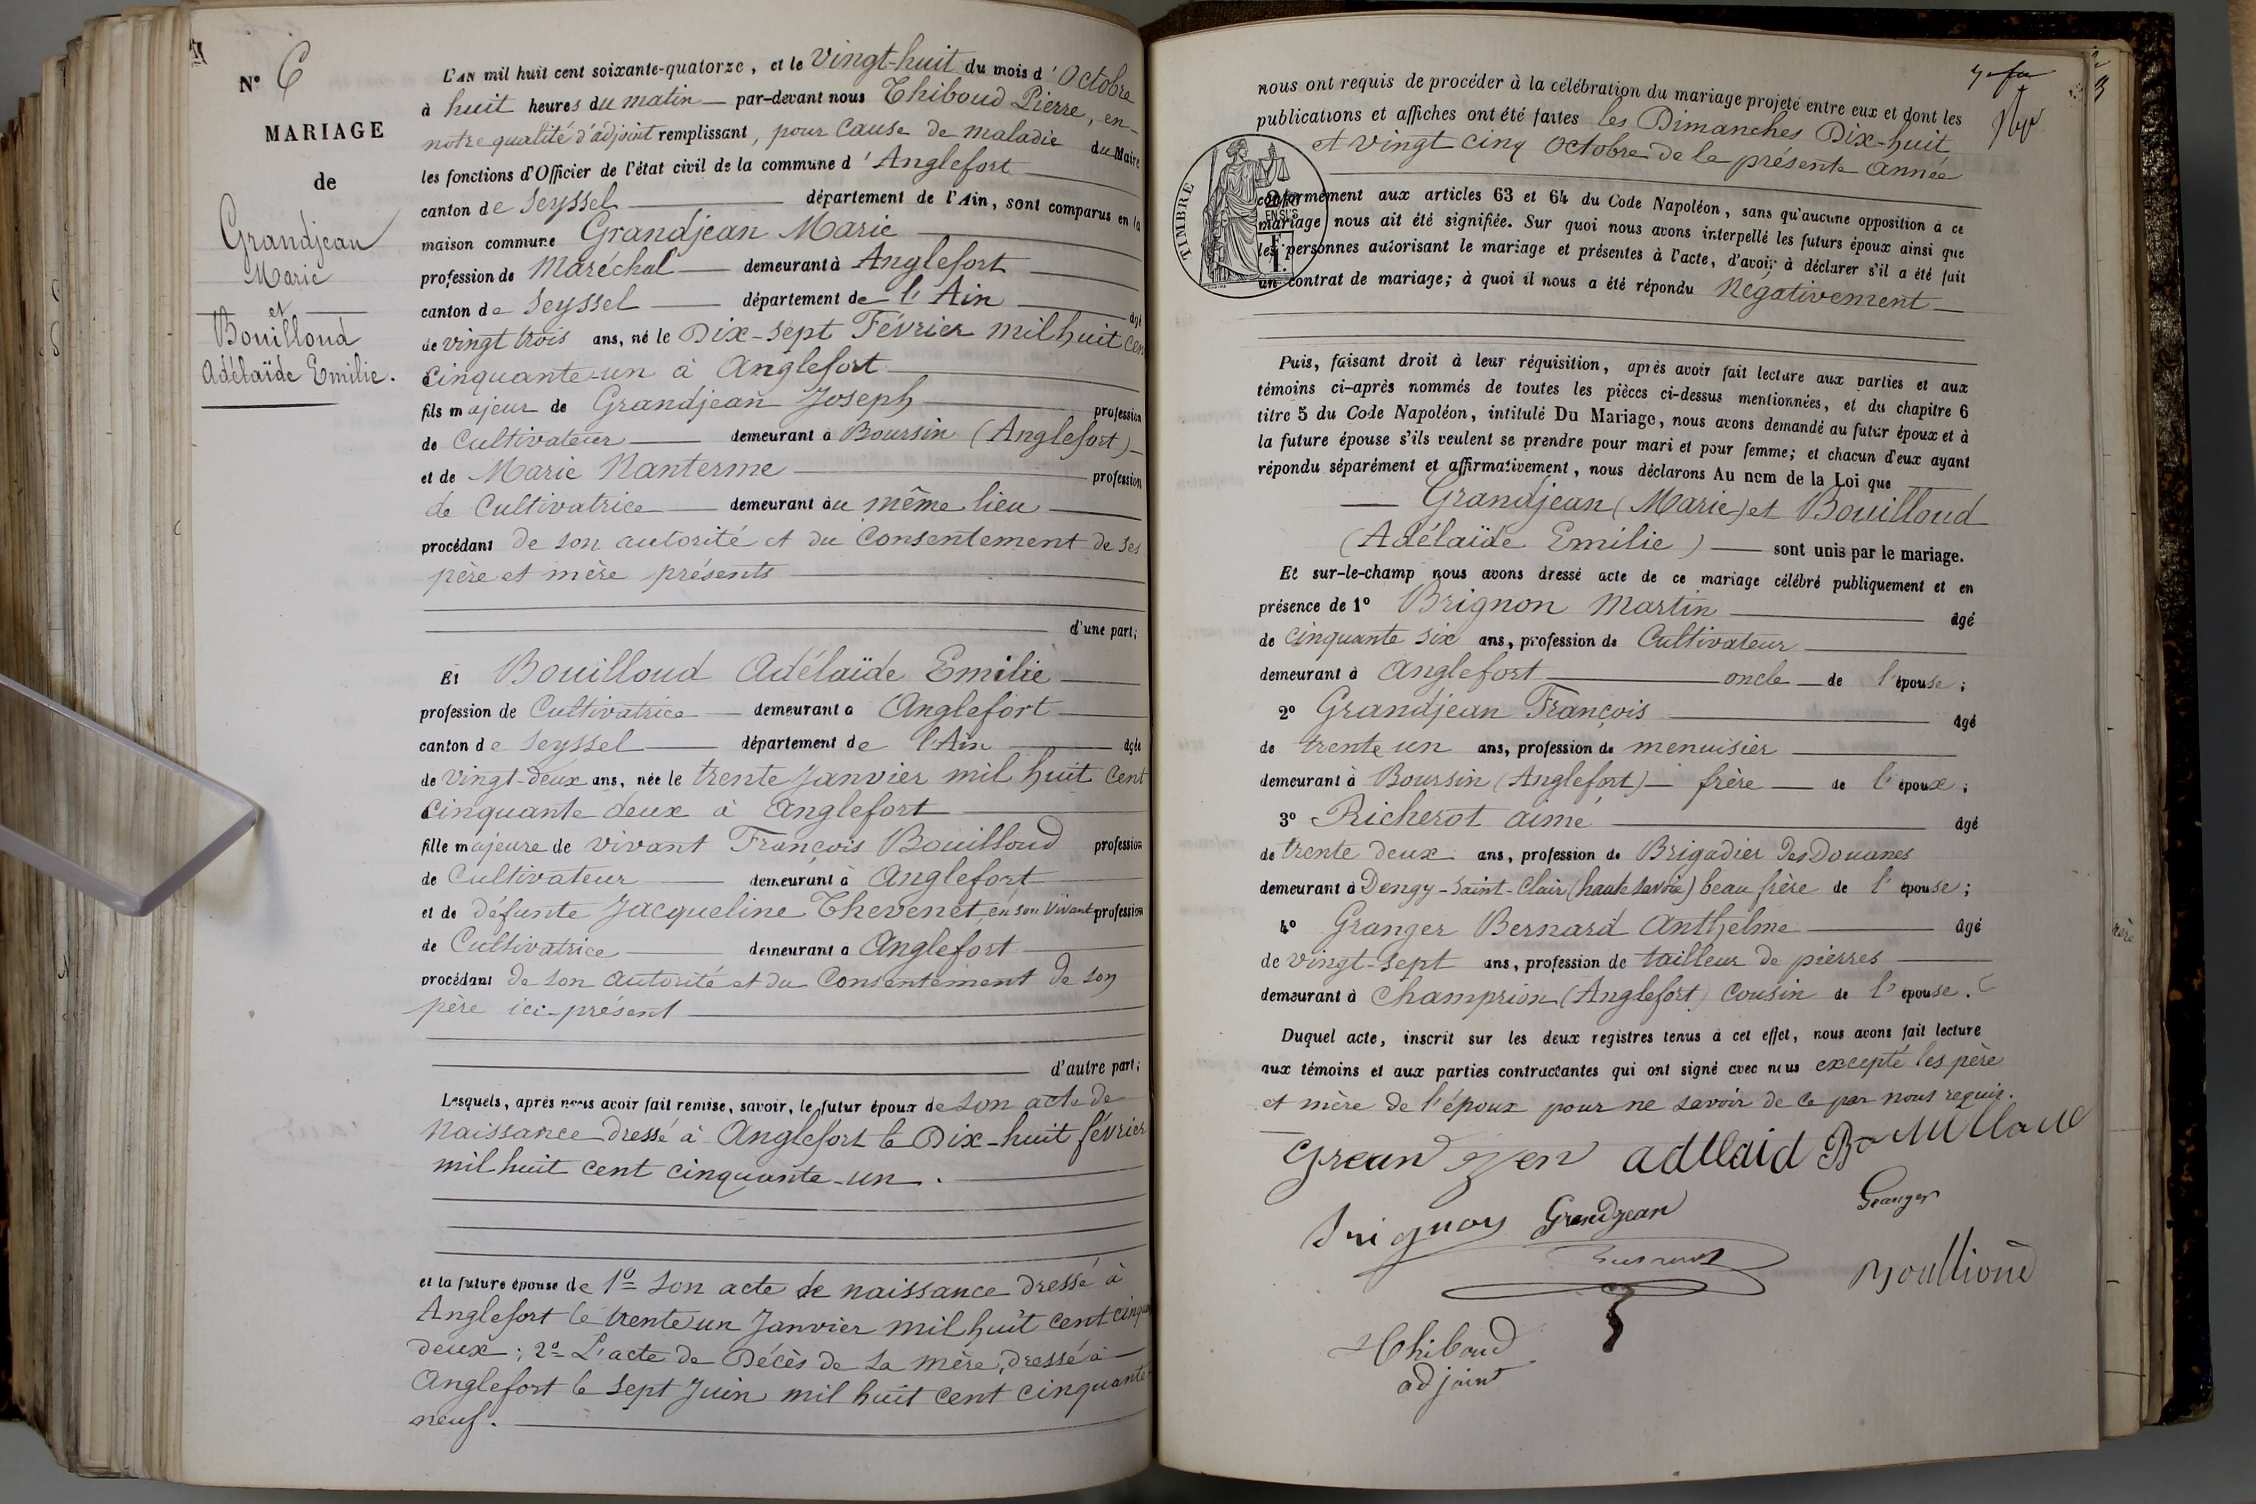 N° 6
MARIAGE
de
Grandjean
Marie
et
Bouilloud
Adélaïde Emilie.
L'AN mil huit cent soixante-quatorze, et le Vingt-huit du mois d'Octobre
à huit heures du matin par-devant nous Thiboud Pierre, en
notre qualité d'adjoint remplissant, pour Cause de maladie du Maire
les fonctions d'Officier de l'état civil de la commune d'Anglefort
canton de Seyssel département de l'Ain, sont comparus en la
maison commune Grandjean Marie
profession de Maréchal demeurant à Anglefort
canton de Seyssel département de l'Ain âgé
de vingt trois ans, né le Dix-sept Février mil huit cen
cinquante-un à Anglefort
fils majeur de Grandjean Joseph profession
de Cultivateur demeurant à Boursin (Anglefort)
et de Marie Nanterme profession
de Cultivatrice demeurant au même lieu
procédant de son autorité et du Consentement de ses
père et mère présents
d'une part;
Et Bouilloud Adélaïde Emilie
profession de Cultivatrice demeurant à Anglefort
canton de Seyssel département de l'Ain âgée
de Vingt-deux ans, née le trente Janvier mil huit Cent
cinquante deux à Anglefort
fille majeure de vivant François Bouilloud profession
de Cultivateur demeurant à Anglefort
et de défunte Jacqueline Thevenet, en son vivant profession
de Cultivatrice demeurant à Anglefort
procédant de son autorité et du Consentement de son
père ici-présent
d'autre part;
Lesquels, après nous avoir fait remise, savoir, le futur époux de son acte de
Naissance dressé à Anglefort le Dix-huit février
mil huit cent cinquante-un.
et la future épouse de 1° son acte de naissance dressé à
Anglefort le trente un Janvier mil huit cent cinqua
deux; 2° L'acte de Décès de sa mère, dressé à
Anglefort le sept Juin mil huit cent cinquante
neuf.
nous ont requis de procéder à la célébration du mariage projeté entre eux et dont les
publications et affiches ont été faites les Dimanches Dix-huit
et vingt cinq Octobre de la présente année
TIMBRE
conformément aux articles 63 et 64 du Code Napoléon, sans qu'aucune opposition à ce
mariage nous ait été signifiée. Sur quoi nous avons interpellé les futurs époux ainsi que
les personnes autorisant le mariage et présentes à l'acte, d'avoir à déclarer s'il a été fait
un contrat de mariage; à quoi il nous a été répondu Négativement
Puis, faisant droit à leur réquisition, après avoir fait lecture aux parties et aux
témoins ci-après nommés de toutes les pièces ci-dessus mentionnées, et du chapitre 6
titre 5 du Code Napoléon, intitulé Du Mariage, nous avons demandé au futur époux et à
la future épouse s'ils veulent se prendre pour mari et pour femme; et chacun d'eux ayant
répondu séparément et affirmativement, nous déclarons Au nom de la Loi que
Grandjean (Marie) et Bouilloud
(Adélaïde Emilie) sont unis par le mariage.
Et sur-le-champ nous avons dressé acte de ce mariage célébré publiquement et en
présence de 1° Brignon Martin âgé
de cinquante six ans, profession de Cultivateur
demeurant à Anglefort oncle de l'épouse;
2° Grandjean François âgé
de trente un ans, profession de menuisier
demeurant à Boursin (Anglefort) frère de l'époux;
3° Richerot aimé âgé
de trente deux ans, profession de Brigadier des Douanes
demeurant à Dengy-Saint-Clair (haute savoie) beau frère de l'épouse;
4° Granger Bernard Anthelme âgé
de vingt-sept ans, profession de tailleur de pierres
demeurant à Champrion (Anglefort) Cousin de l'épouse.
Duquel acte, inscrit sur les deux registres tenus à cet effet, nous avons fait lecture
aux témoins et aux parties contractantes qui ont signé avec nous excepté les père
et mère de l'époux pour ne savoir de ce par nous requis.
adllaid Bouilloud
Grandjean
Granger
Thiboud
adjoint